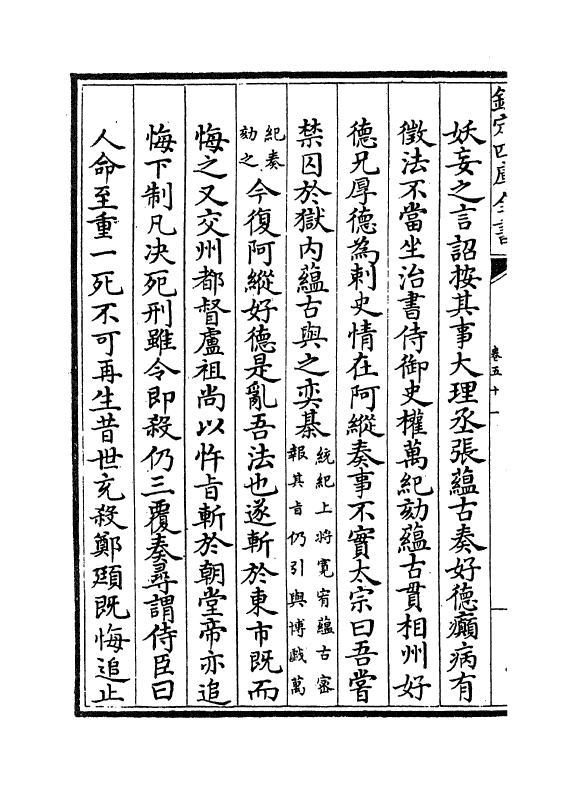 欽定四庫全書
卷五十一
妖妄之言詔按其事大理丞張蘊古奏好德癲病有
徵法不當坐治書侍御史權萬紀劾蘊古貫相州好
德兄厚德為刺史情在阿縱奏事不實太宗曰吾嘗
禁囚於獄內蘊古與之奕棊統紀上將寬宥蘊古密報其旨仍引與博戲萬
紀奏劾之今復阿縱好德是亂吾法也遂斬於東市既而
悔之又交州都督盧祖尚以忤旨斬於朝堂帝亦追
悔下制凡决死刑雖令即殺仍三覆奏尋謂侍臣曰
人命至重一死不可再生昔世充殺鄭頲既悔追止